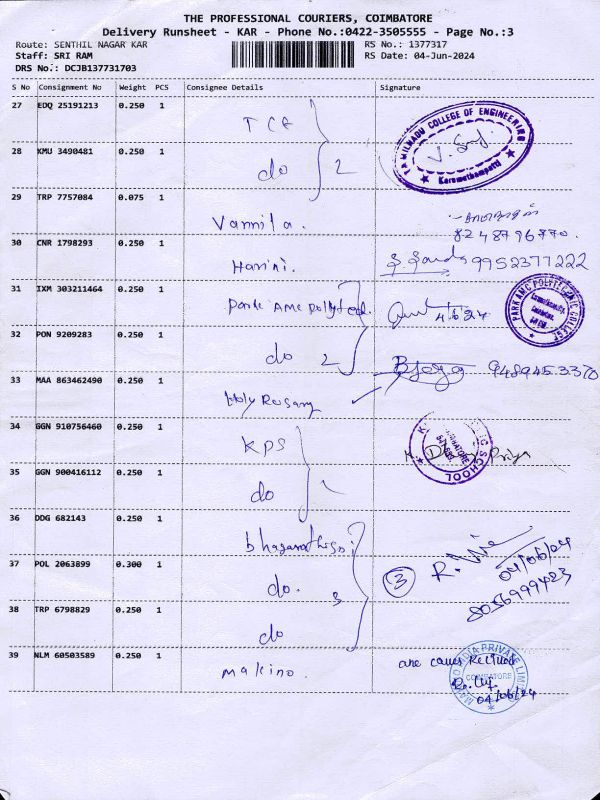 THE PROFESSIONAL COURIERS, COIMBATORE
Delivery Runsheet - KAR - Phone No.:0422-3505555 - Page No.:3
Route: SENTHIL NAGAR KAR
RS No.: 1377317
Staff: SRI RAM
RS Date: 04-Jun-2024
DRS No.: DCJB137731703
S No Consignment No Weight PCS Consignee Details Signature
27 EDQ 25191213 0.250 1 TCE
TAMILNADU COLLEGE OF ENGINEERING
Karumathampatti
28 KMU 3490481 0.250 1 do 2
29 TRP 7757084 0.075 1 Vannila.
8248796770.
30 CNR 1798293 0.250 1 Harini. 9952377222
31 IXM 303211464 0.250 1 Park AMC Polytech 4/6/24
PARK AMC POLYTECHNIC COLLEGE
32 PON 9209283 0.250 1 do 2
33 MAA 863462490 0.250 1 Holy Rosary
34 GGN 910756460 0.250 1 KPS
SCHOOL
35 GGN 900416112 0.250 1 do
36 DDG 682143 0.250 1
37 POL 2063899 0.300 1 do. 3 3 04/06/24
8056999423
38 TRP 6798829 0.250 1 do
39 NLM 60503589 0.250 1 makino.
INDIA PRIVATE LIMITED
COIMBATORE
04/06/24